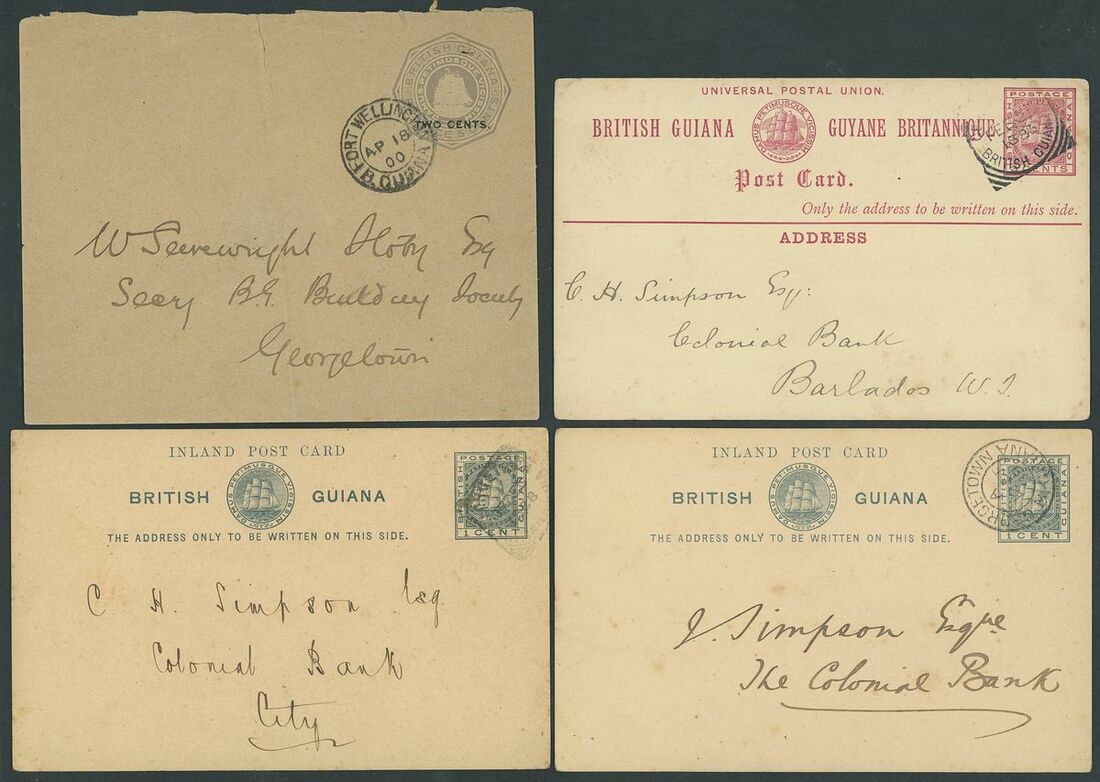 BRITISH GUIANA
DAMUS PETIMUSQUE VICISSIM
TWO CENTS.
FORT WELLINGTON
AP 18
00
B. GUIANA
Esq
Secy B.G. Building Society
Georgetown
UNIVERSAL POSTAL UNION.
BRITISH GUIANA
DAMUS PETIMUSQUE VICISSIM
GUYANE BRITANNIQUE
POSTAGE
CENTS
BRITISH GUIANA
Post Card.
Only the address to be written on this side.
ADDRESS
C. H. Simpson Esqr:
Colonial Bank
Barbados W. I.
INLAND POST CARD
BRITISH GUIANA
DAMUS PETIMUSQUE VICISSIM
THE ADDRESS ONLY TO BE WRITTEN ON THIS SIDE.
POSTAGE
BRITISH
GUIANA
1 CENT
C. H. Simpson Esq.
Colonial Bank
City
INLAND POST CARD
BRITISH GUIANA
DAMUS PETIMUSQUE VICISSIM
THE ADDRESS ONLY TO BE WRITTEN ON THIS SIDE.
POSTAGE
BRITISH
GUIANA
1 CENT
J. Simpson Esqre
The Colonial Bank